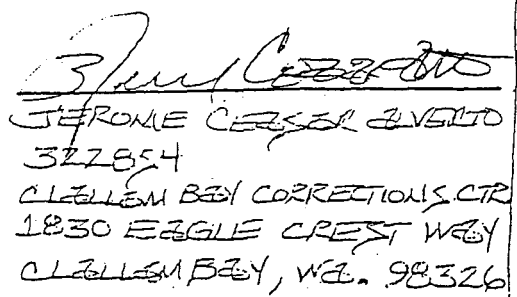 JEROME CEASAR ALVERTO
322854
CLALLAM BAY CORRECTIONS CTR
1830 EAGLE CREST WAY
CLALLAM BAY, WA. 98326